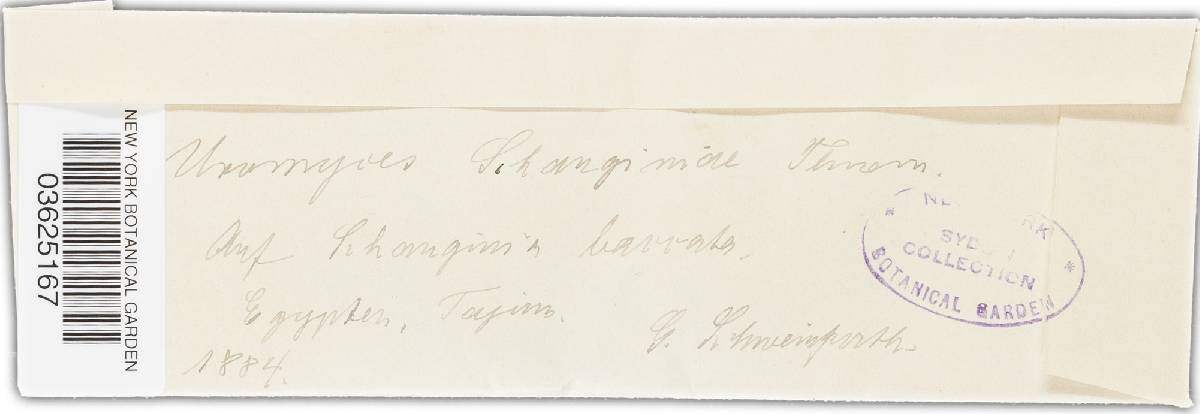 NEW YORK BOTANICAL GARDEN
03625167
Uromyces Schanginiae Thüm.
Auf Schanginia baccata.
Egypten, Fajum.
G. Schweinfurth.
1884.
NEW YORK
SYDOW
COLLECTION
BOTANICAL GARDEN